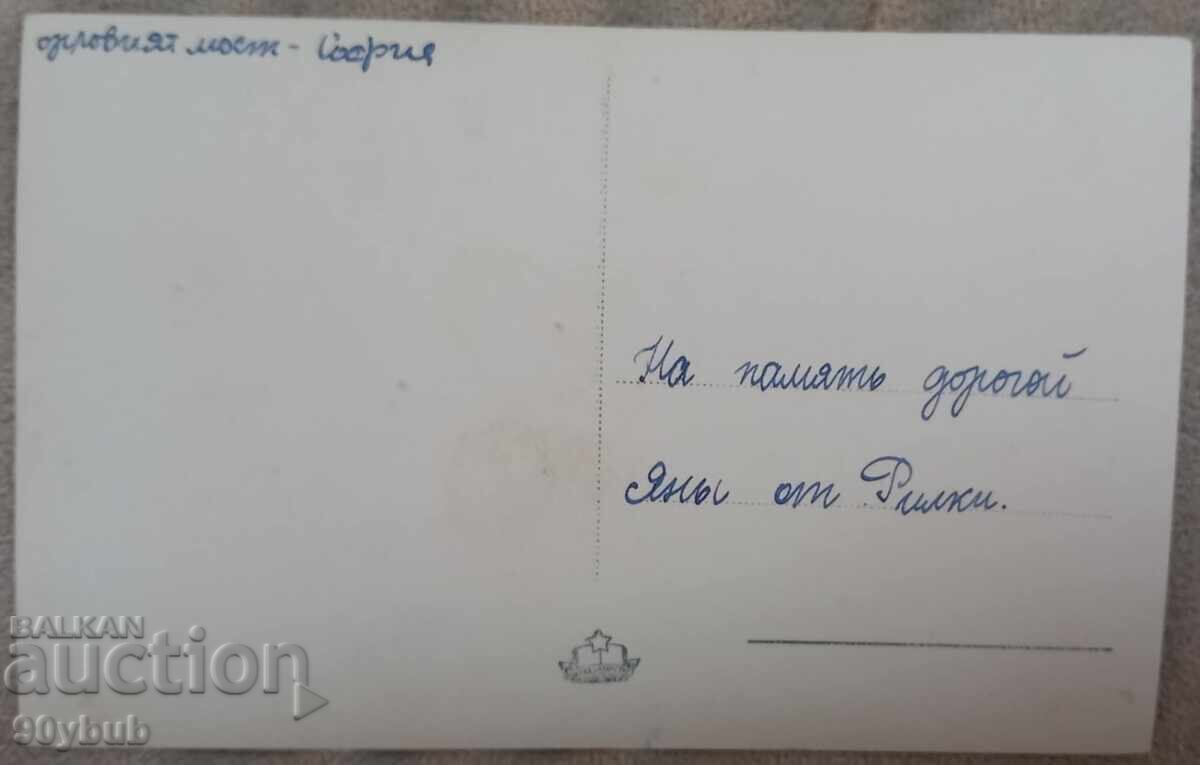 орловият мост - София
На память дорогой
Яны от Рилки.
BALKAN
auction
90ybub